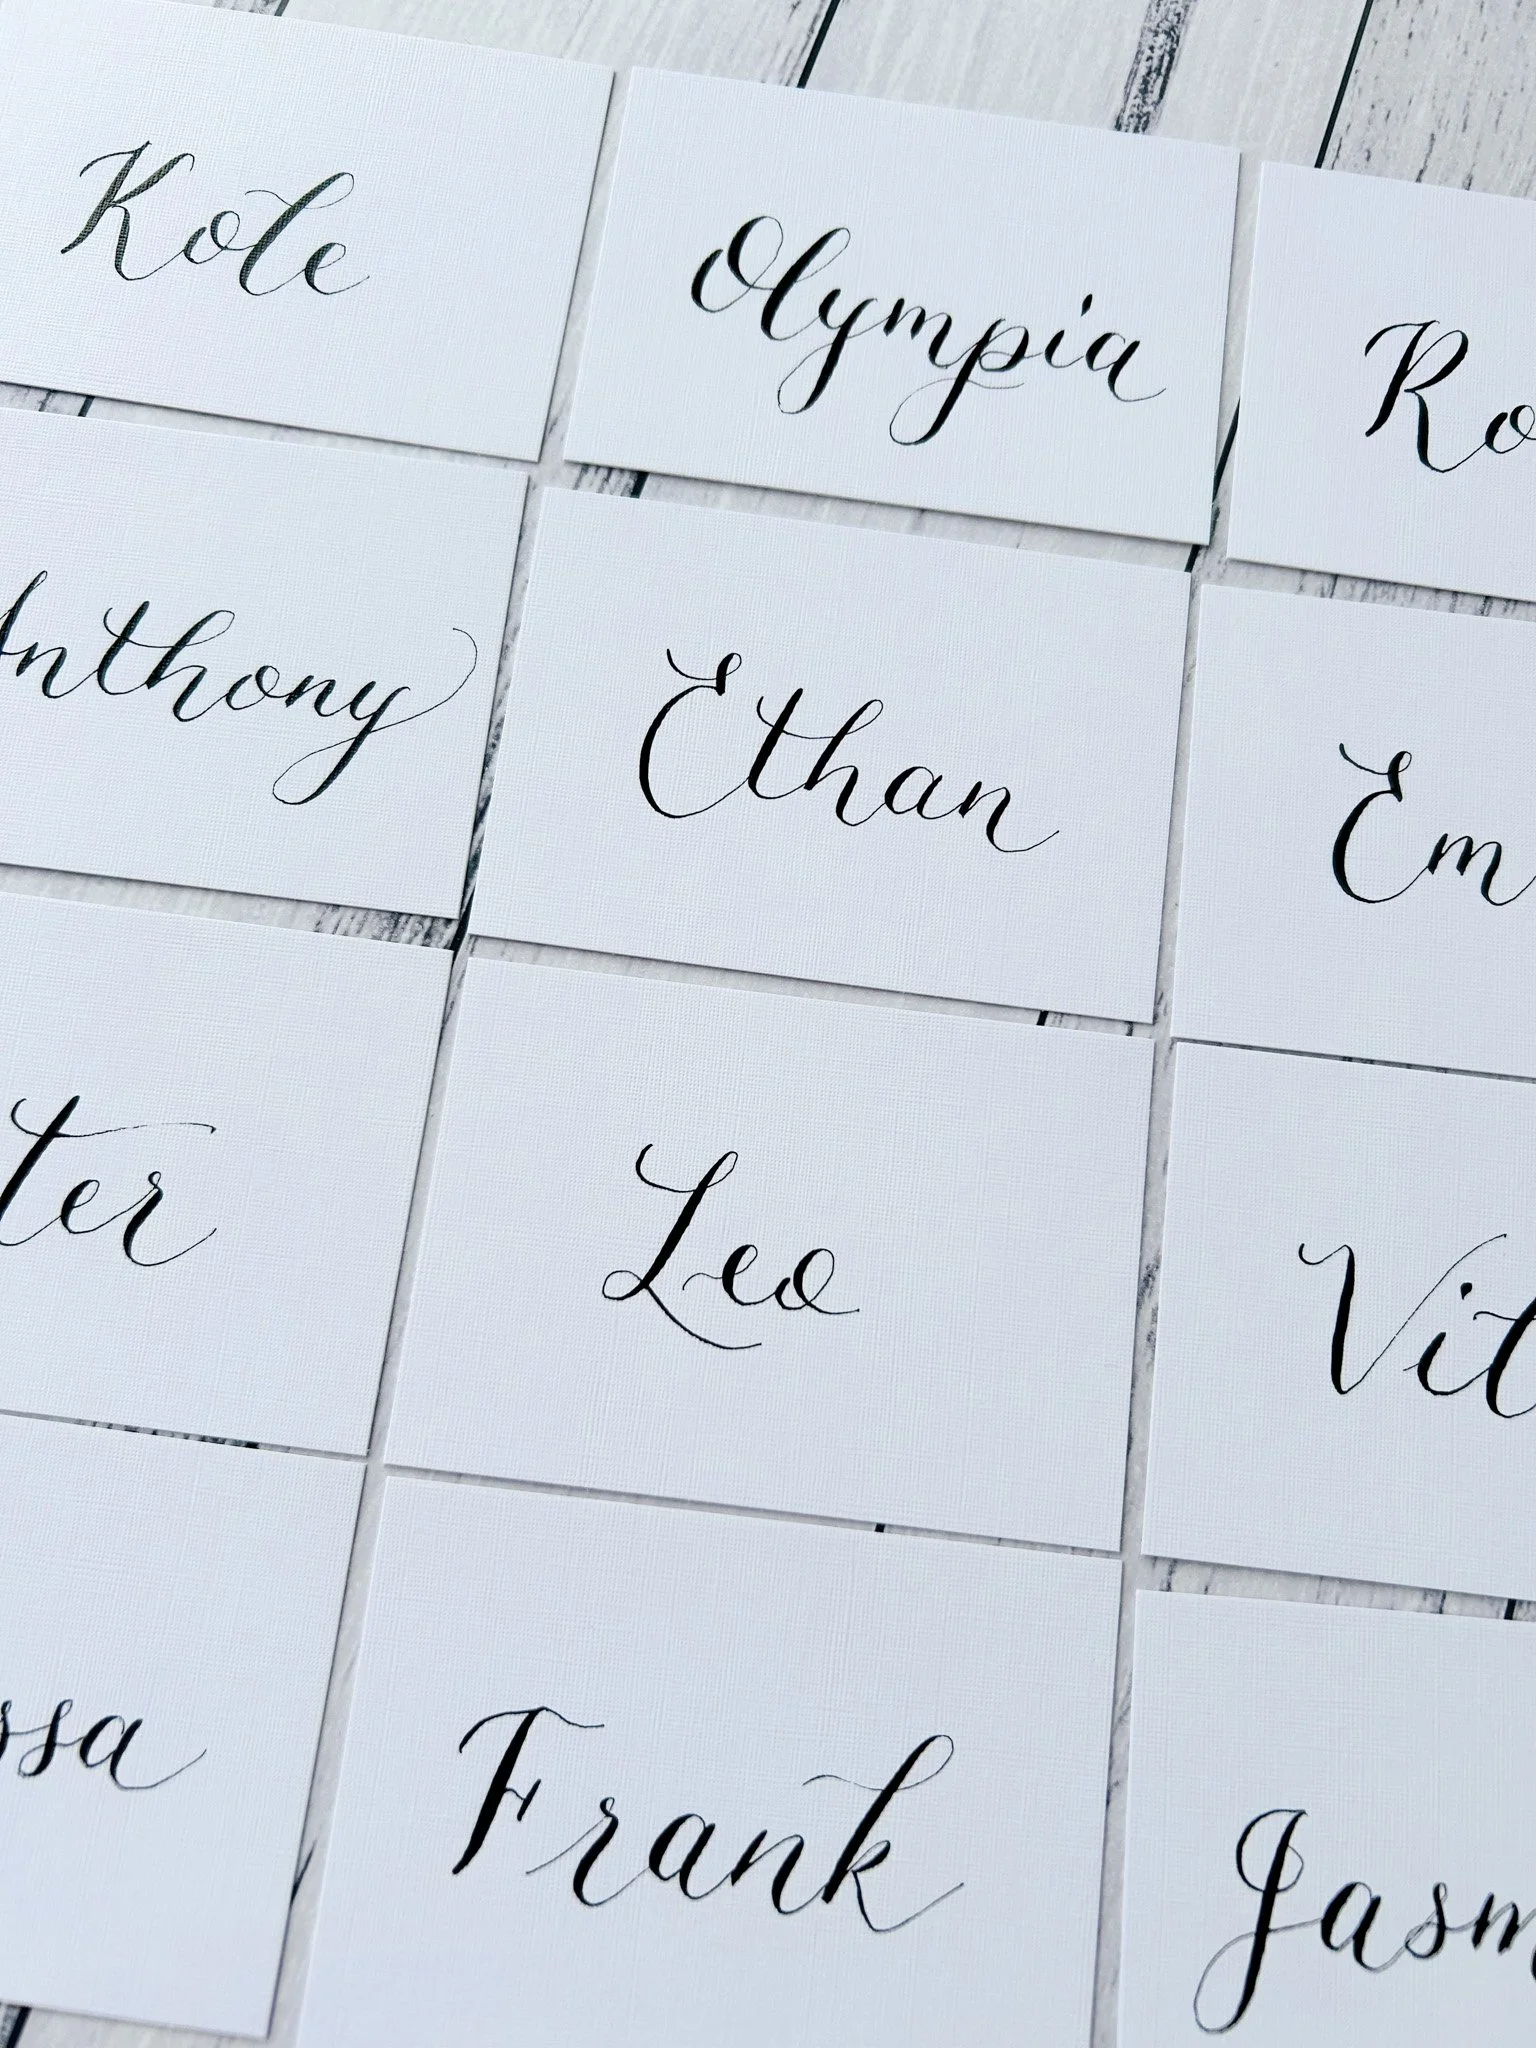 Kole
Olympia
Ro
Anthony
Ethan
Em
ter
Leo
Vit
ssa
Frank
Jasm